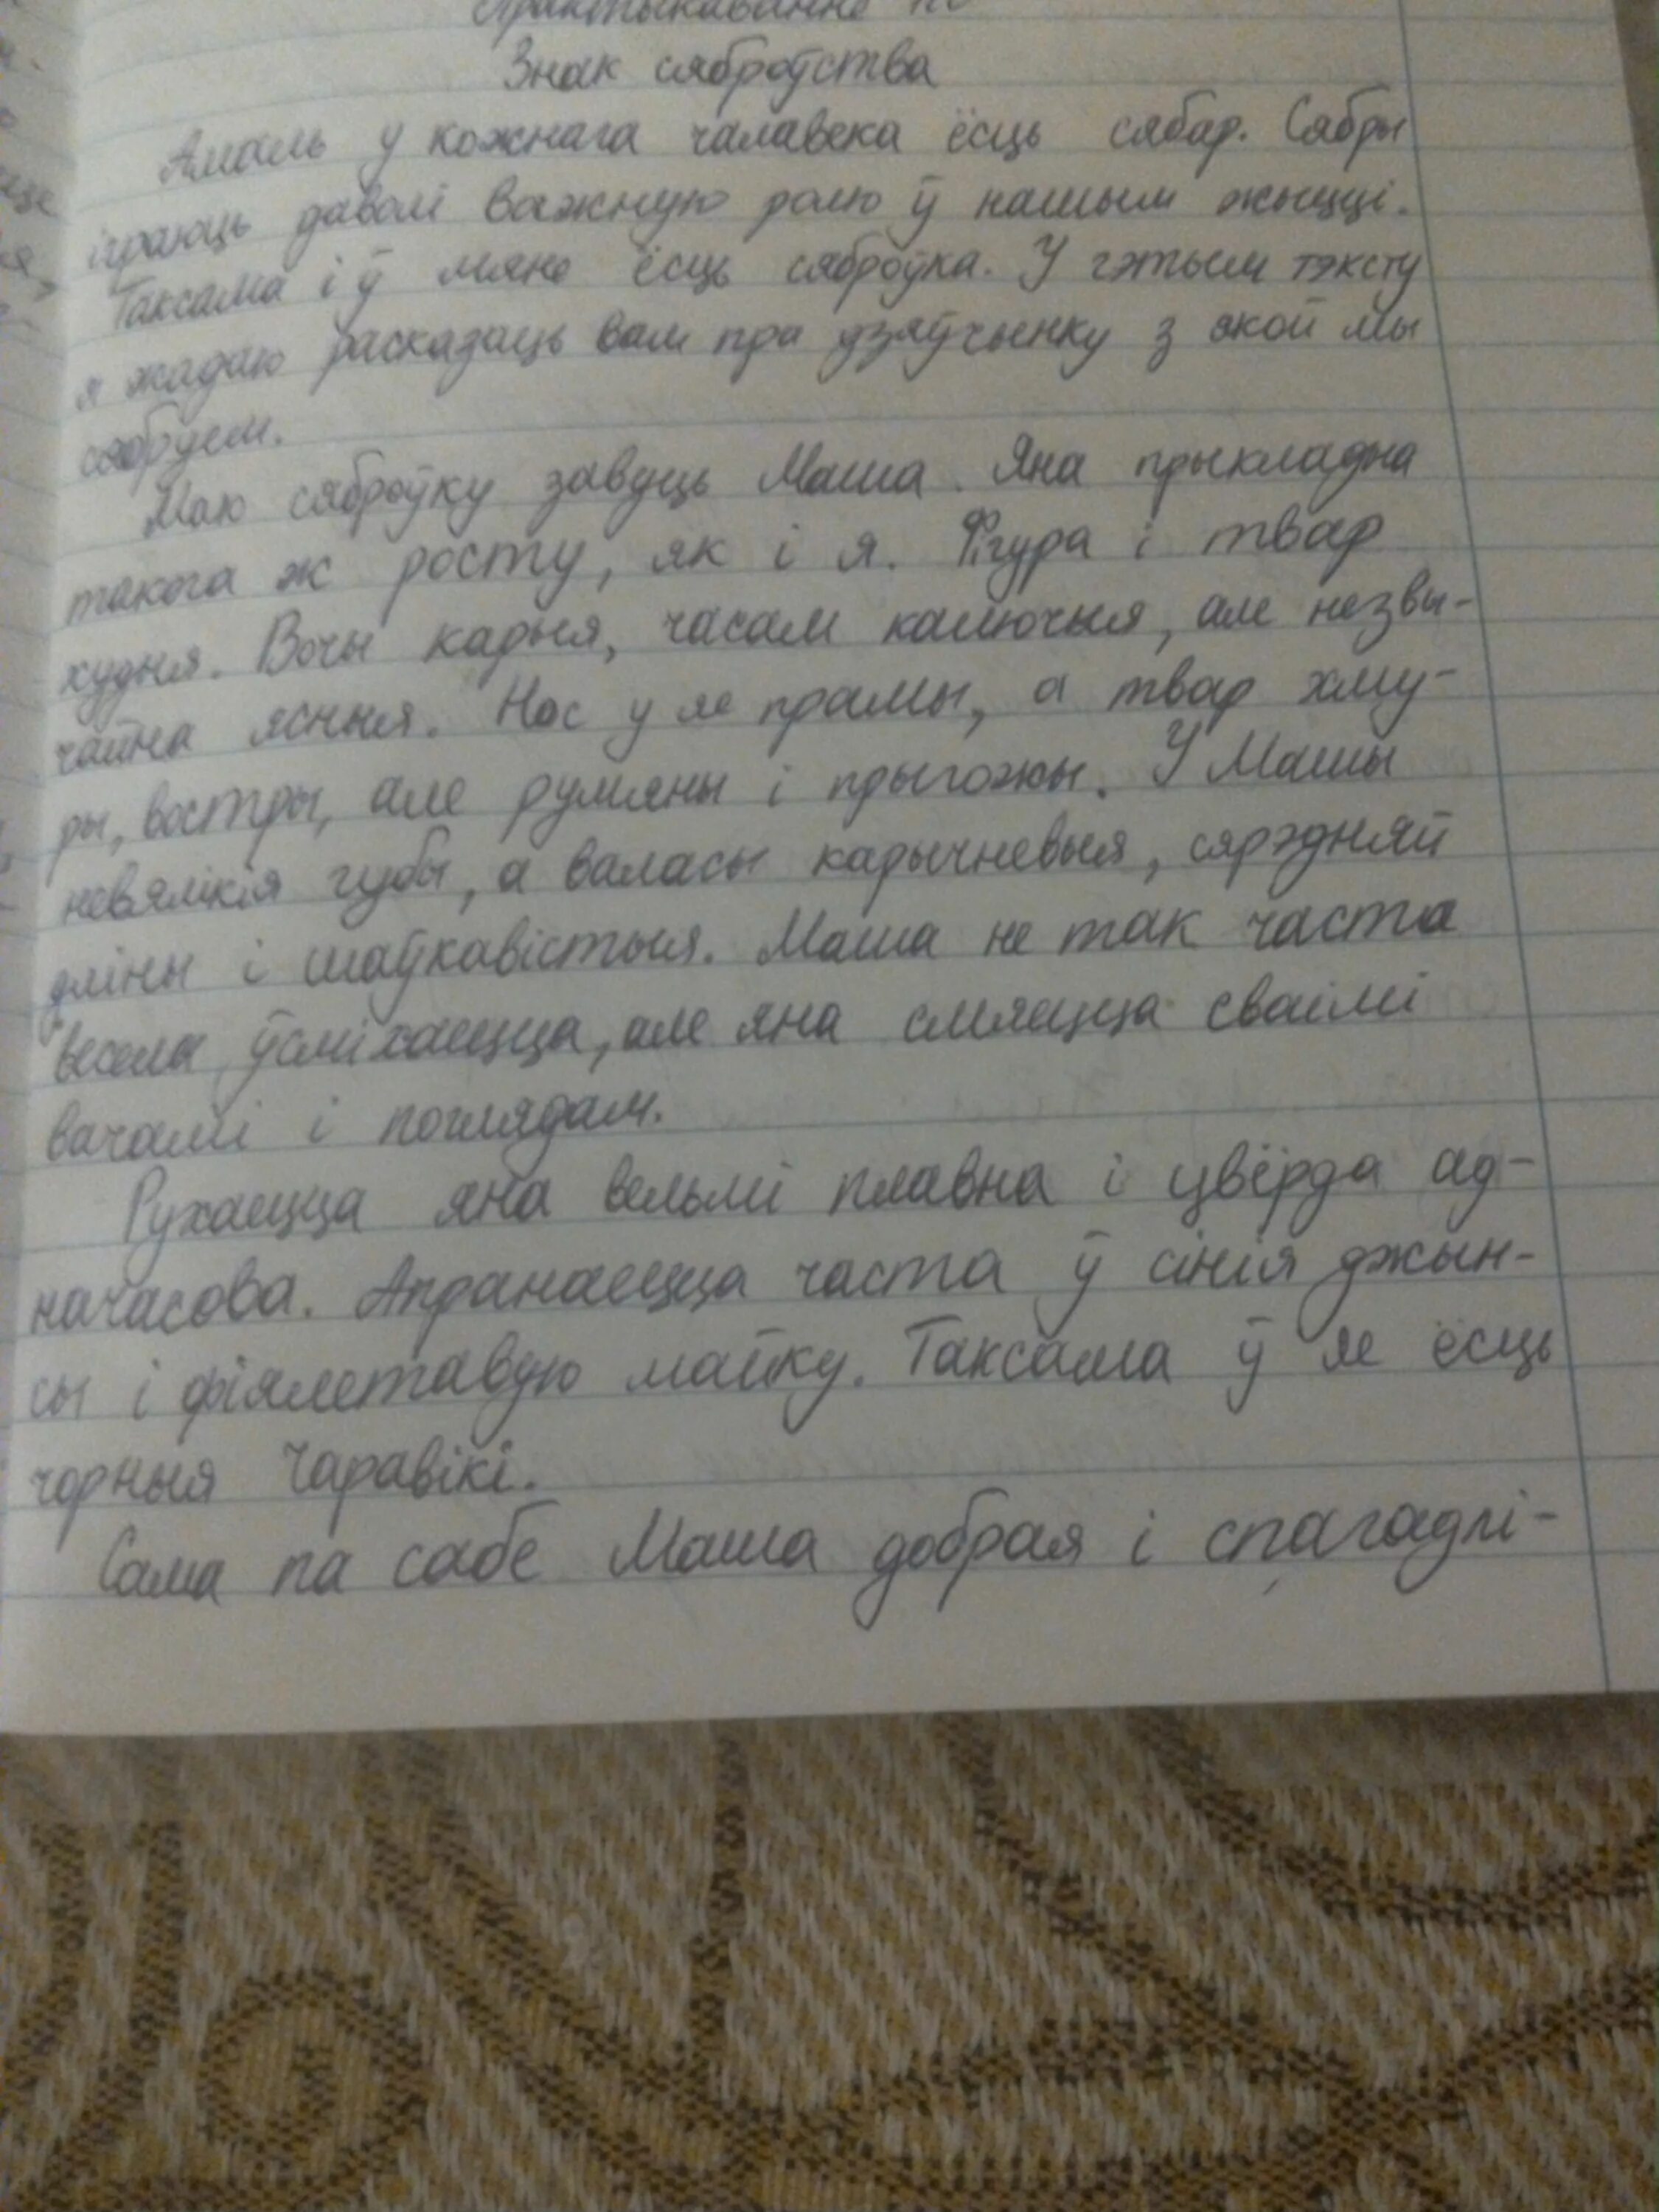 Знак сяброўства
Амаль у кожнага чалавека ёсць сябар. Сябры
іграюць даволі важную ролю ў нашым жыцці.
Таксама і ў мяне ёсць сяброўка. У гэтым тэксту
я жадаю расказаць вам пра дзяўчынку з якой мы
сябруем.
Маю сяброўку завуць Маша. Яна прыкладна
такога ж росту, як і я. Фігура і твар
худыя. Вочы карыя, часам калючыя, але незвы-
чайна ясныя. Нос у яе прамы, а твар хму-
ры, востры, але румяны і прыгожы. У Машы
невялікія губы, а валасы карычневыя, сярэдняй
дліны і шаўкавістыя. Маша не так часта
весела ўсміхаецца, але яна смяецца сваімі
вачамі і поглядам.
Рухаецца яна вельмі плавна і цвёрда ад-
начасова. Апранаецца часта ў сінія джын-
сы і фіялетавую майку. Таксама ў яе ёсць
чорныя чаравікі.
Сама па сабе Маша добрая і спагадлі-